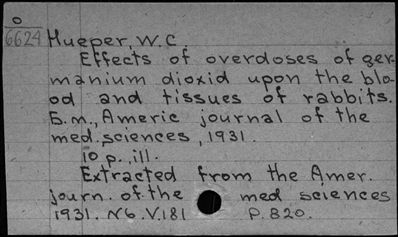 O
6624 Hueper, W.C.
Effects of overdoses of ger-
manium dioxid upon the blo-
od and tissues of rabbits.
Б.m., Americ journal of the
med. sciences, 1931.
10 p., ill.
Extracted from the Amer.
journ. of the med sciences
1931. N6. V.181 P. 820.